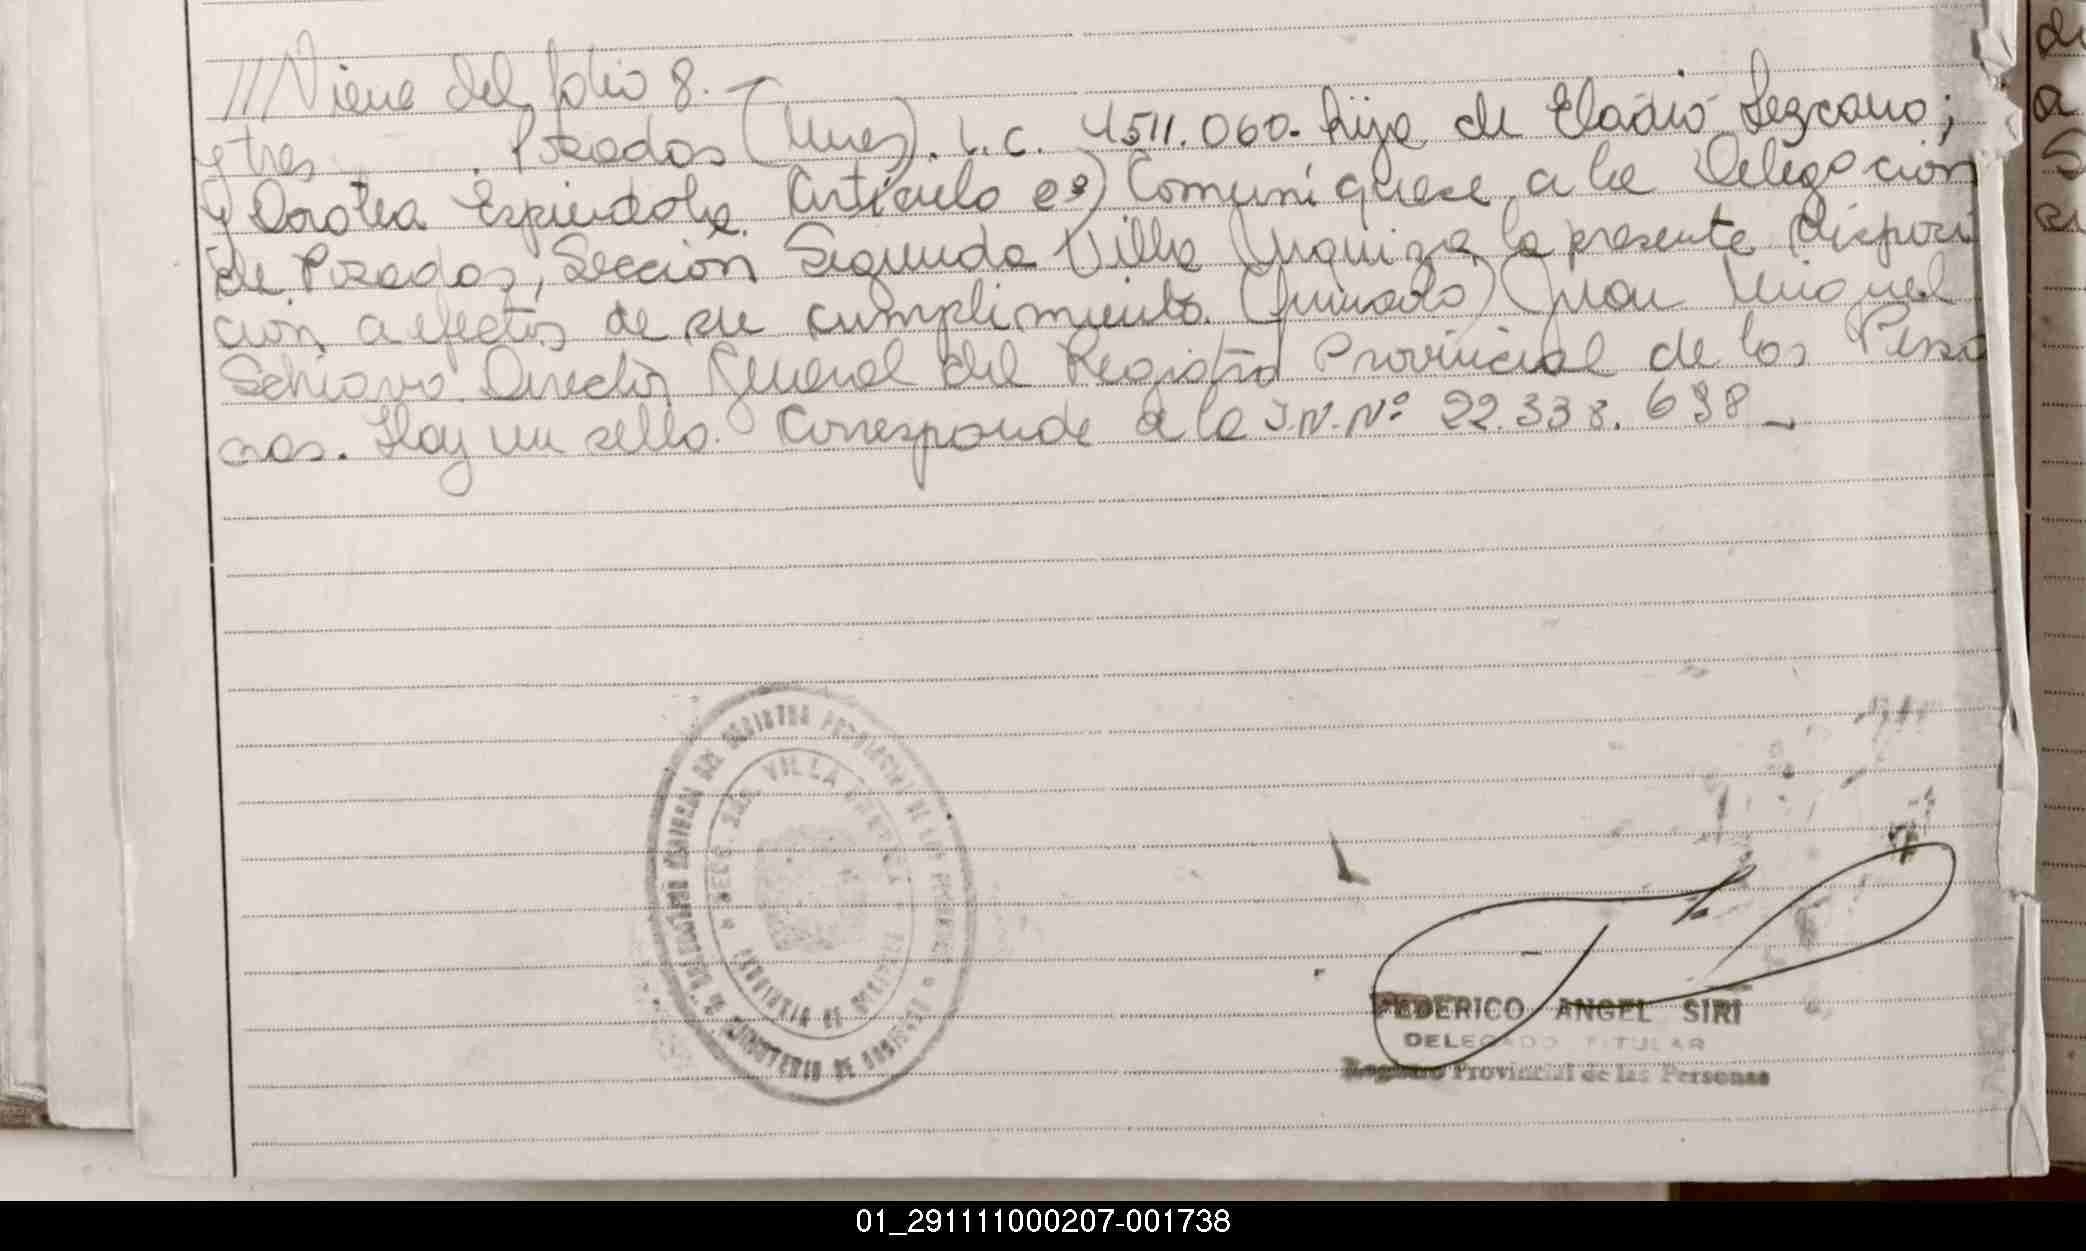 ///Viene del folio 8.-
y tres Posadas (Mnes). L.C. 4511.060. hija de Eladio Lezcano;
y Dorotea Espindola. Artículo 2º) Comuniquese a la Delegacion
de Posadas, Sección Segunda Villa Urquiza la presente disposi
cion a efectos de su cumplimiento. (firmado) Juan Miguel
Schiavo Director General del Registro Provincial de las Perso
nas. Hay un sello. Corresponde a la I.N.Nº 22.338.698 -
REGISTRO PROVINCIAL DE LAS PERSONAS
MINISTERIO DE GOBIERNO
SECC. 2da. VILLA URQUIZA
PROVINCIA DE MISIONES
FEDERICO ANGEL SIRI
DELEGADO TITULAR
Registro Provincial de las Personas
di
a
S
01_291111000207-001738